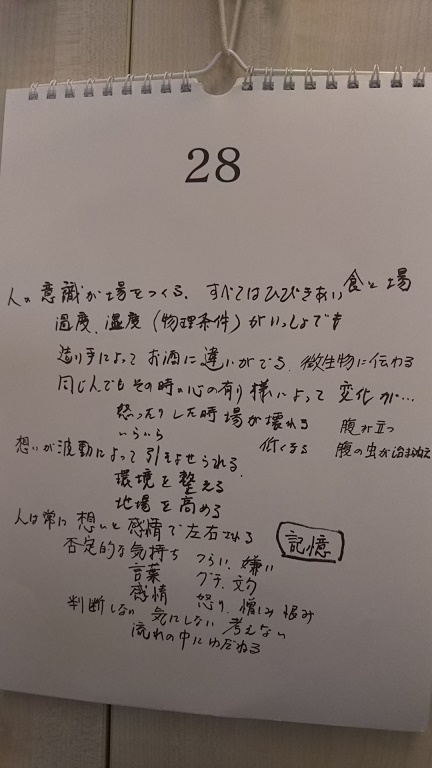 28
人の意識が場をつくる. すべてはひびきあい 食と場
温度、湿度(物理条件)がいっしょでも
造り手によってお酒に違いがでる. 微生物に伝わる
同じ人でもその時の心の有り様によって 変化が…
怒ったりした時 場が壊れる 腹が立つ
いらいら 低くなる 腹の虫が治まらねえ
想いが波動によって引きよせられる
環境を整える
地場を高める
人は常に 想いと感情で左右される
否定的な気持ち つらい、嫌い 記憶
言葉 グチ、文句
感情 怒り、憎しみ 恨み
判断しない 気にしない 考えない
流れの中にゆだねる